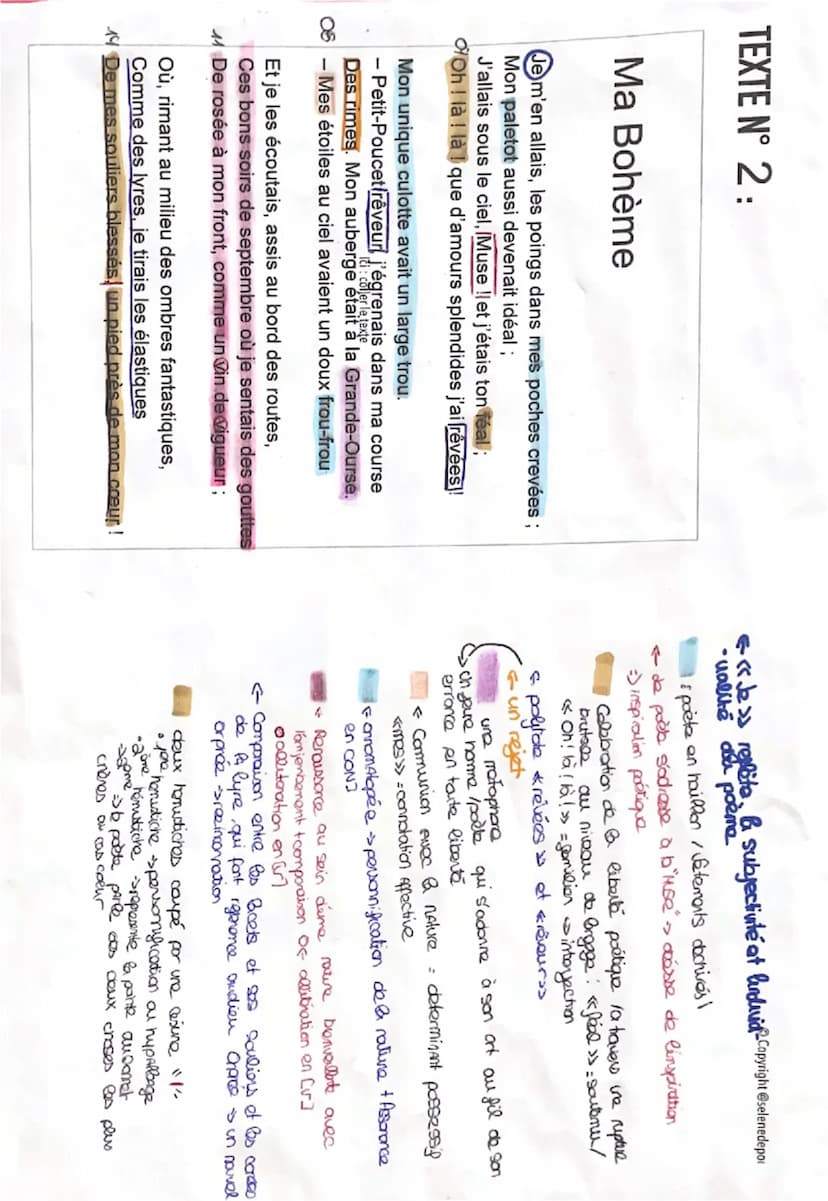 TEXTE N° 2 :
Ma Bohème
Je m'en allais, les poings dans mes poches crevées ;
Mon paletot aussi devenait idéal ;
J'allais sous le ciel, Muse ! et j'étais ton féal ;
04 Oh ! là ! là ! que d'amours splendides j'ai rêvées !
Mon unique culotte avait un large trou.
– Petit-Poucet rêveur, j'égrenais dans ma course
ici : coller le texte
Des rimes. Mon auberge était à la Grande-Ourse.
08 – Mes étoiles au ciel avaient un doux frou-frou
Et je les écoutais, assis au bord des routes,
Ces bons soirs de septembre où je sentais des gouttes
11 De rosée à mon front, comme un vin de vigueur ;
Où, rimant au milieu des ombres fantastiques,
Comme des lyres, je tirais les élastiques
14 De mes souliers blessés, un pied près de mon cœur !
© Copyright @selenedepoi
← «Je» reflète la subjectivité et l'individ
-ualité du poème
: poète en haillon / vêtements
← Le poète s'adresse à la "MUSE" → déesse de l'inspiration
⇒ inspiration poétique
Célébration de la liberté poétique à travers une rupture
brutale au niveau du langage : «féal» = soutenir /
« Oh! là! là!» = → interjection
← polyptote «rêvées» et «rêveur»
← un rejet
une métaphore
↳ un jeune homme / poète qui s'adonne à son art au fil de son
errance en toute liberté
← Communion avec la nature = déterminant possessif
«mes» = connotation affective
← onomatopée → personnification de la nature + Assonance
en [ON]
← Renaissance au sein d'une nature bienveillante avec
l'enjambement + comparaison allitération en [v]
allitération en [r]
← Comparaison entre les lacets et ses souliers et les cordes
de la lyre, qui font référence au dieu Orphée → un nouvel
orphée → réincarnation
deux hémistiches coupé par une césure "!"
• 1er hémistiche → personnification ou hypallage
• 2ème hémistiche → représente
⇒ le poète parle des deux choses les plus
chères au cœur